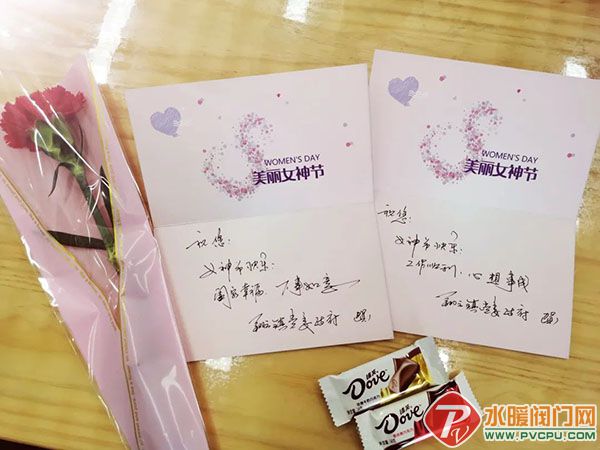 WOMEN'S DAY
美丽女神节
祝您:
女神节快乐!
阖家幸福、万事如意
WOMEN'S DAY
美丽女神节
祝您:
女神节快乐!
工作顺利、心想事成
德芙
Dove
德芙
Dove
PV
水暖阀门网
WWW.PVCPU.COM